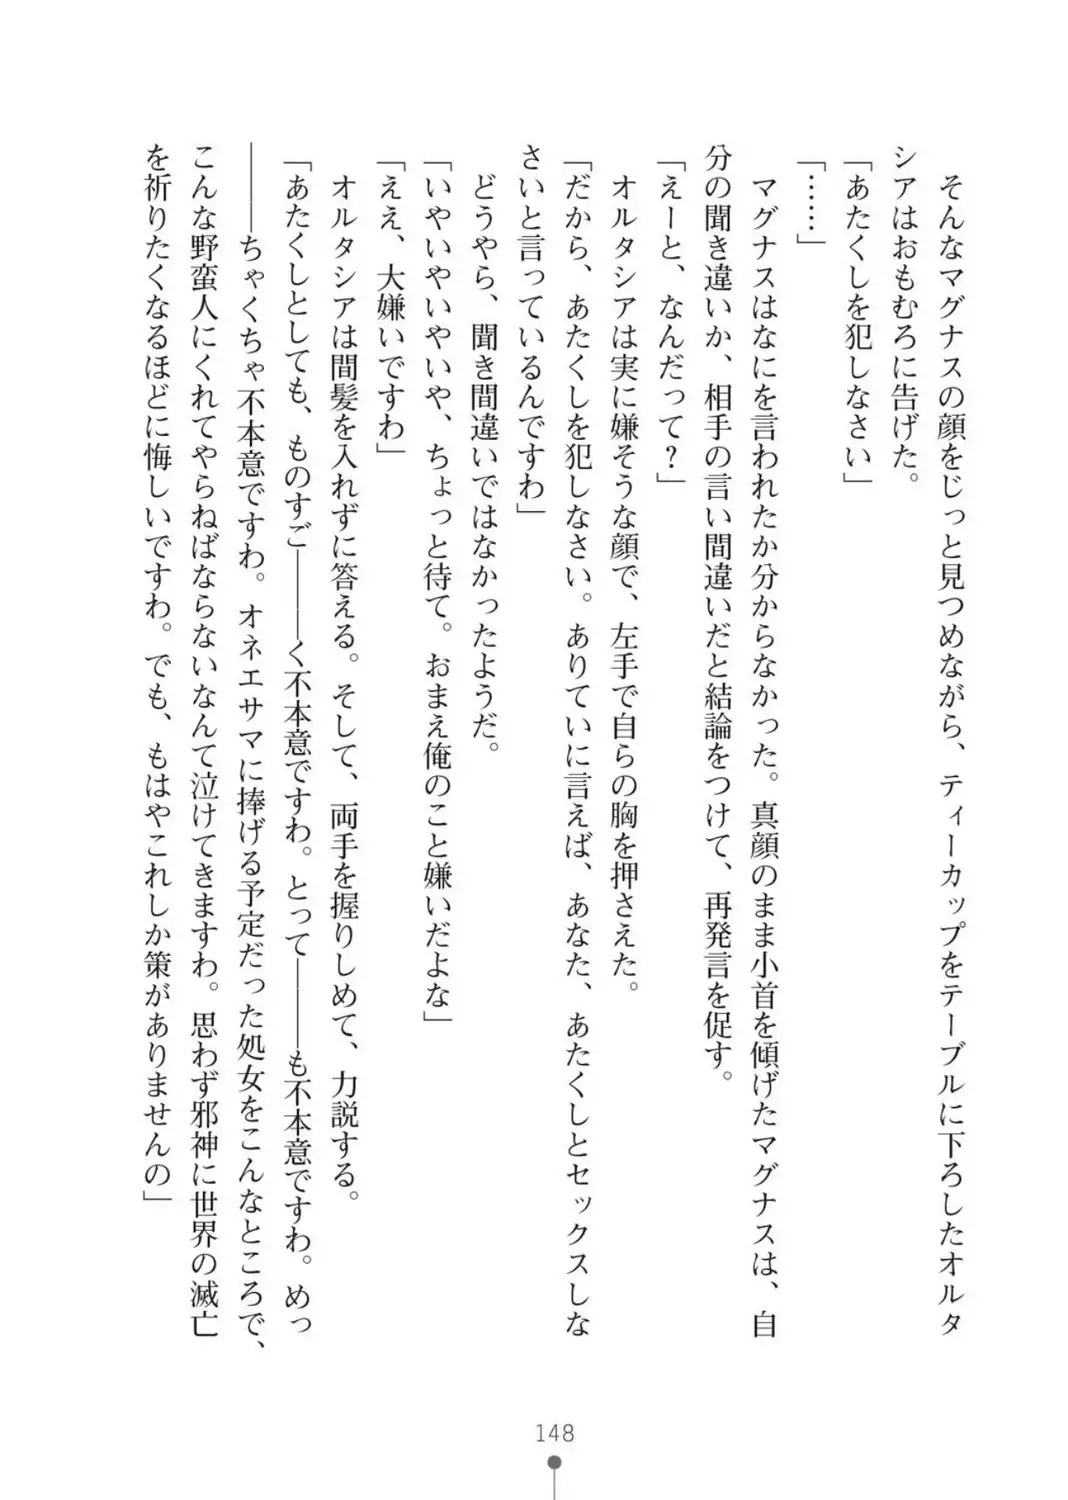 そんなマグナスの顔をじっと見つめながら、ティーカップをテーブルに下ろしたオルタ
シアはおもむろに告げた。
「あたくしを犯しなさい」
「……」
マグナスはなにを言われたか分からなかった。真顔のまま小首を傾げたマグナスは、自
分の聞き違いか、相手の言い間違いだと結論をつけて、再発言を促す。
「えーと、なんだって？」
オルタシアは実に嫌そうな顔で、左手で自らの胸を押さえた。
「だから、あたくしを犯しなさい。ありていに言えば、あなた、あたくしとセックスしな
さいと言っているんですわ」
どうやら、聞き間違いではなかったようだ。
「いやいやいやいや、ちょっと待て。おまえ俺のこと嫌いだよな」
「ええ、大嫌いですわ」
オルタシアは間髪を入れずに答える。そして、両手を握りしめて、力説する。
「あたくしとしても、ものすご────く不本意ですわ。とって────も不本意ですわ。めっ
───ちゃくちゃ不本意ですわ。オネエサマに捧げる予定だった処女をこんなところで、
こんな野蛮人にくれてやらねばならないなんて泣けてきますわ。思わず邪神に世界の滅亡
を祈りたくなるほどに悔しいですわ。でも、もはやこれしか策がありませんの」
148